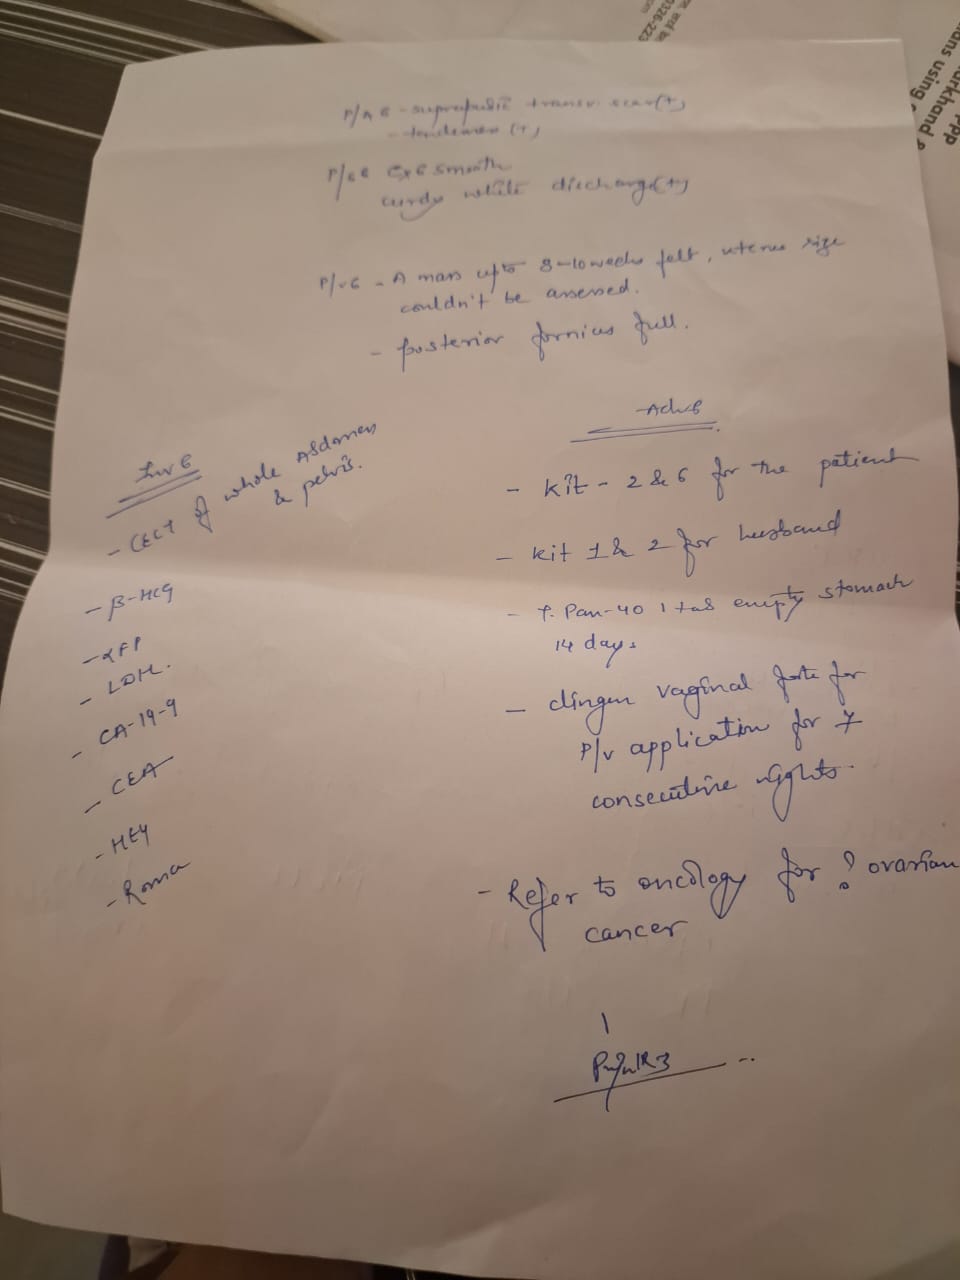 P/A E - suprapubic transv. scar(+)
- tenderness (+)
P/S E Cx E smooth
curdy white discharge(+)
P/V E - A mass upto 8-10 weeks felt, uterus size
couldn't be assessed.
- posterior fornices full.
Inv E
- CECT of whole Abdomen
& pelvis.
- β-HCG
- αFP
- LDH.
- CA-19-9
- CEA
- HE4
- Roma
Adv E
- Kit - 2 & 6 for the patient
- kit 1 & 2 for husband
- T. Pan-40 1 tab empty stomach
14 days
- clingen vaginal forte for
P/v application for 7
consecutive nights.
- Refer to oncology for ? ovarian
cancer
0326-223
ans using
arkhand &
ppp